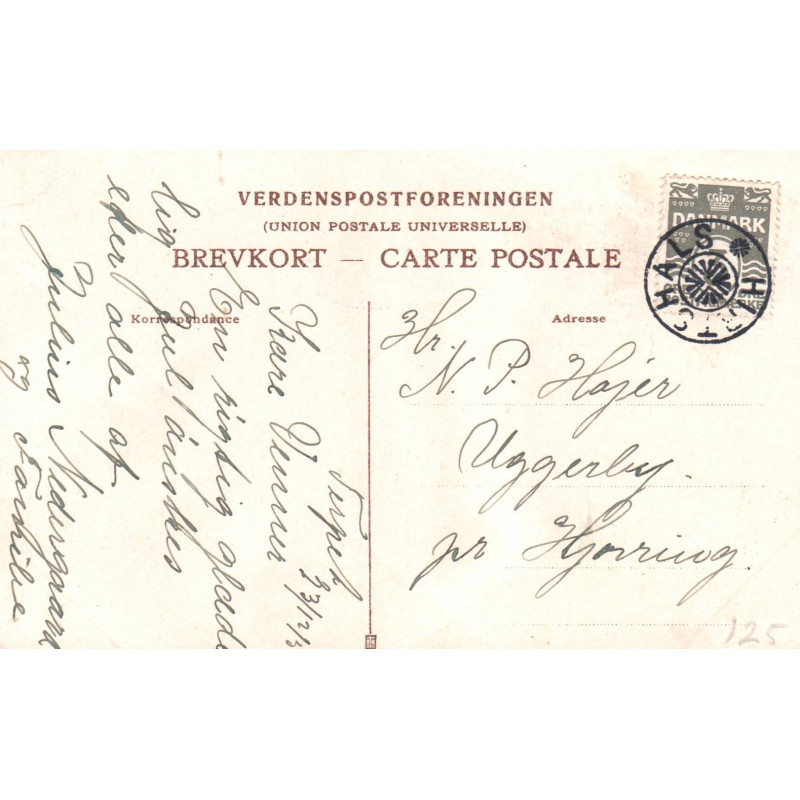 VERDENSPOSTFORENINGEN
(UNION POSTALE UNIVERSELLE)
BREVKORT — CARTE POSTALE
Korrespondance
Adresse
DANMARK
HIRTSHALS
Hr.
N. P. Højer
Uggerby.
pr Hjørring.
Terpet 23/12/3
Kære Venner
En rigtig glæde
lig Jul ønskes
eder alle af
Julius Nedergaard
og Familie
125